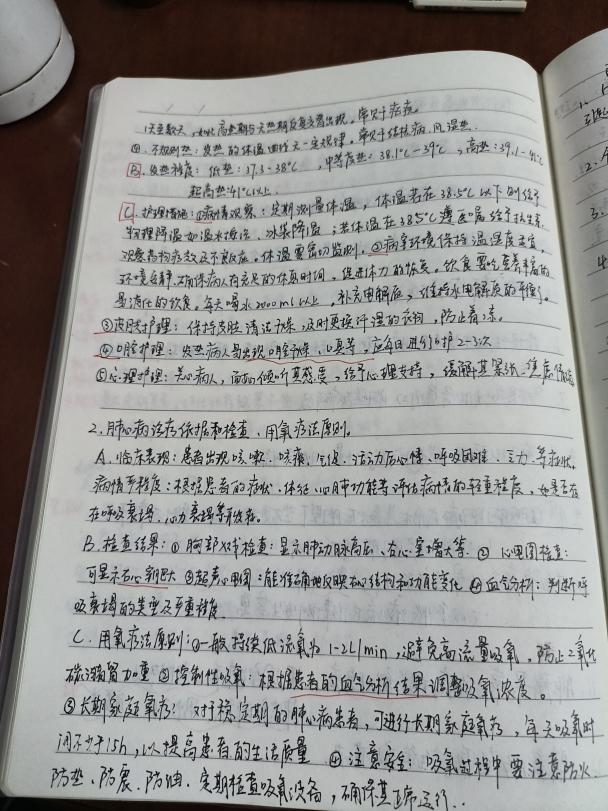 1天至数天，如此高热期与无热期反复交替出现。常见于疟疾。
④. 不规则热：发热的体温曲线无一定规律。常见于结核病、风湿热.
B. 发热程度：低热：37.3-38℃ ，中等度热：38.1℃-39℃ ，高热：39.1-41℃
超高热：41℃以上.
C. 护理措施：①病情观察：定期测量体温，体温若在38.5℃以下则给予
物理降温如温水擦浴、冰袋降温；若体温在38.5℃遵医嘱给予抗生素
观察药物疗效及不良反应。体温要密切监测。②病室环境保持温湿度适宜，
环境安静，确保病人有充足的休息时间，促进体力的恢复。饮食要吃营养丰富的
易消化的饮食，每天喝水2000ml以上，补充电解质，维持水电解质的平衡。
③皮肤护理：保持皮肤清洁干燥，及时更换汗湿的衣物，防止着凉。
④口腔护理：发热病人易出现口腔干燥、口臭等，应每日进行口护2-3次
⑤心理护理：关心病人，耐心倾听其感受，给予心理支持，缓解其紧张、焦虑情绪
2. 肺心病诊断依据和检查、用氧疗法原则。
A. 临床表现：患者出现咳嗽、咳痰、气促、活动后心悸、呼吸困难、乏力等症状。
病情严重程度：根据患者的症状、体征、心肺功能等评估病情的轻重程度，如是否存
在呼吸衰竭、心力衰竭等并发症。
B. 检查结果：① 胸部X线检查：显示肺动脉高压、右心室增大等. ② 心电图检查：
可显示右心室肥大 ③超声心动图：能准确地反映右心结构和功能变化 ④血气分析：判断呼
吸衰竭的类型及严重程度.
C. 用氧疗法原则：①一般持续低流氧为1-2L/min，避免高流量吸氧，防止二氧化
碳潴留加重 ②控制性吸氧：根据患者的血气分析结果调整吸氧浓度。
③长期家庭氧疗：对于稳定期的肺心病患者，可进行长期家庭氧疗，每天吸氧时
间不少于15h，以提高患者的生活质量 ④ 注意安全：吸氧过程中要注意防火
防热、防震、防油、定期检查吸氧设备，确保其正常运行.